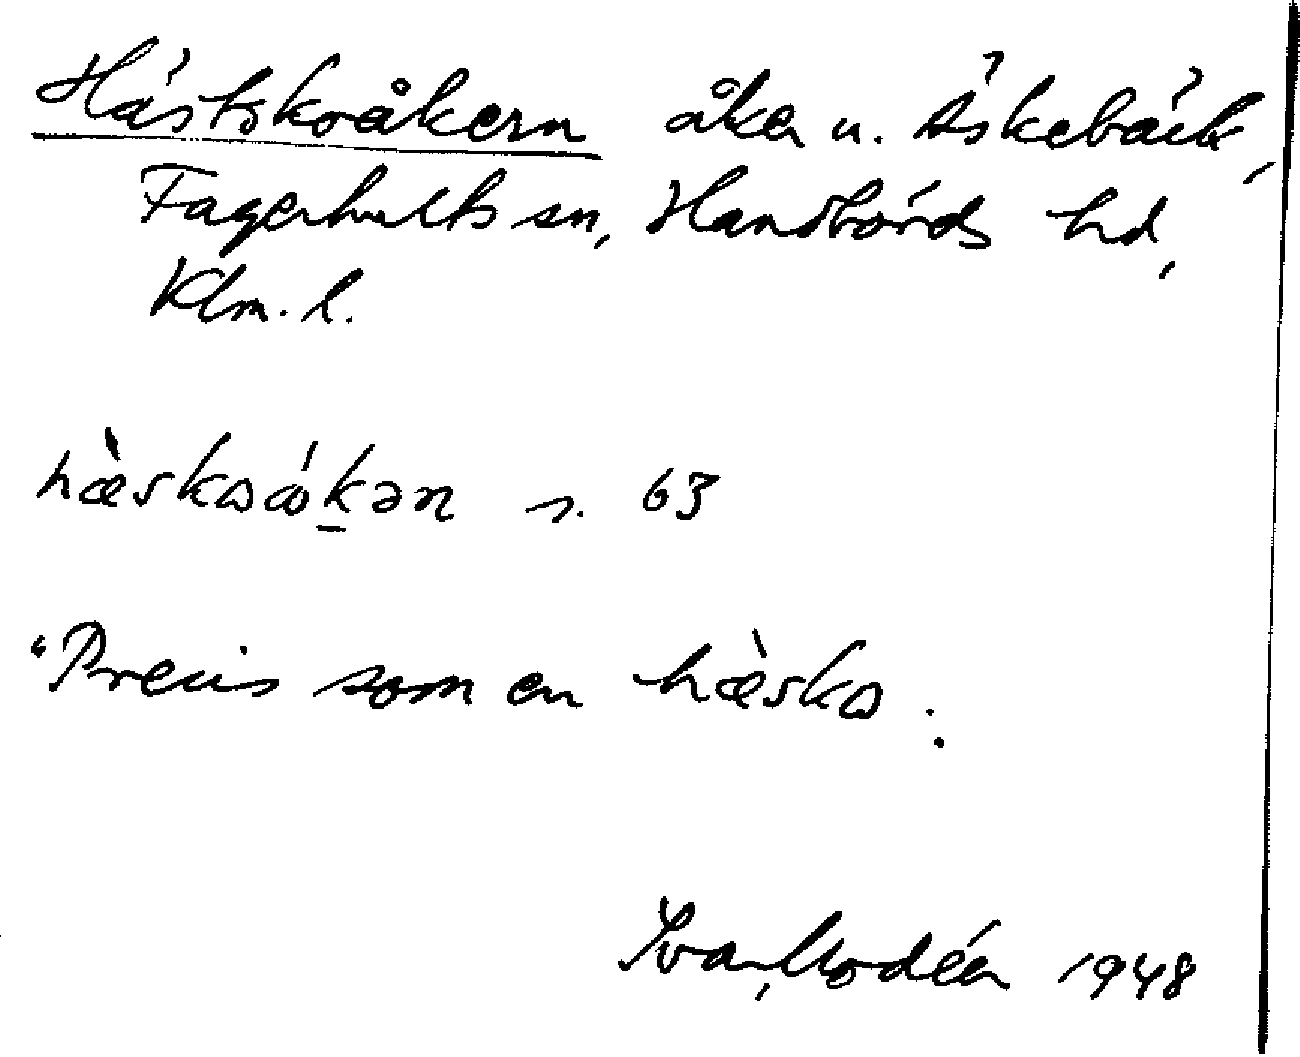 Hästskoåkern åker u. Äskebäck,
Fagerhults sn, Handbörds hd,
Klm. l.
s. 63
"Precis som en
Ivar Modéer 1948